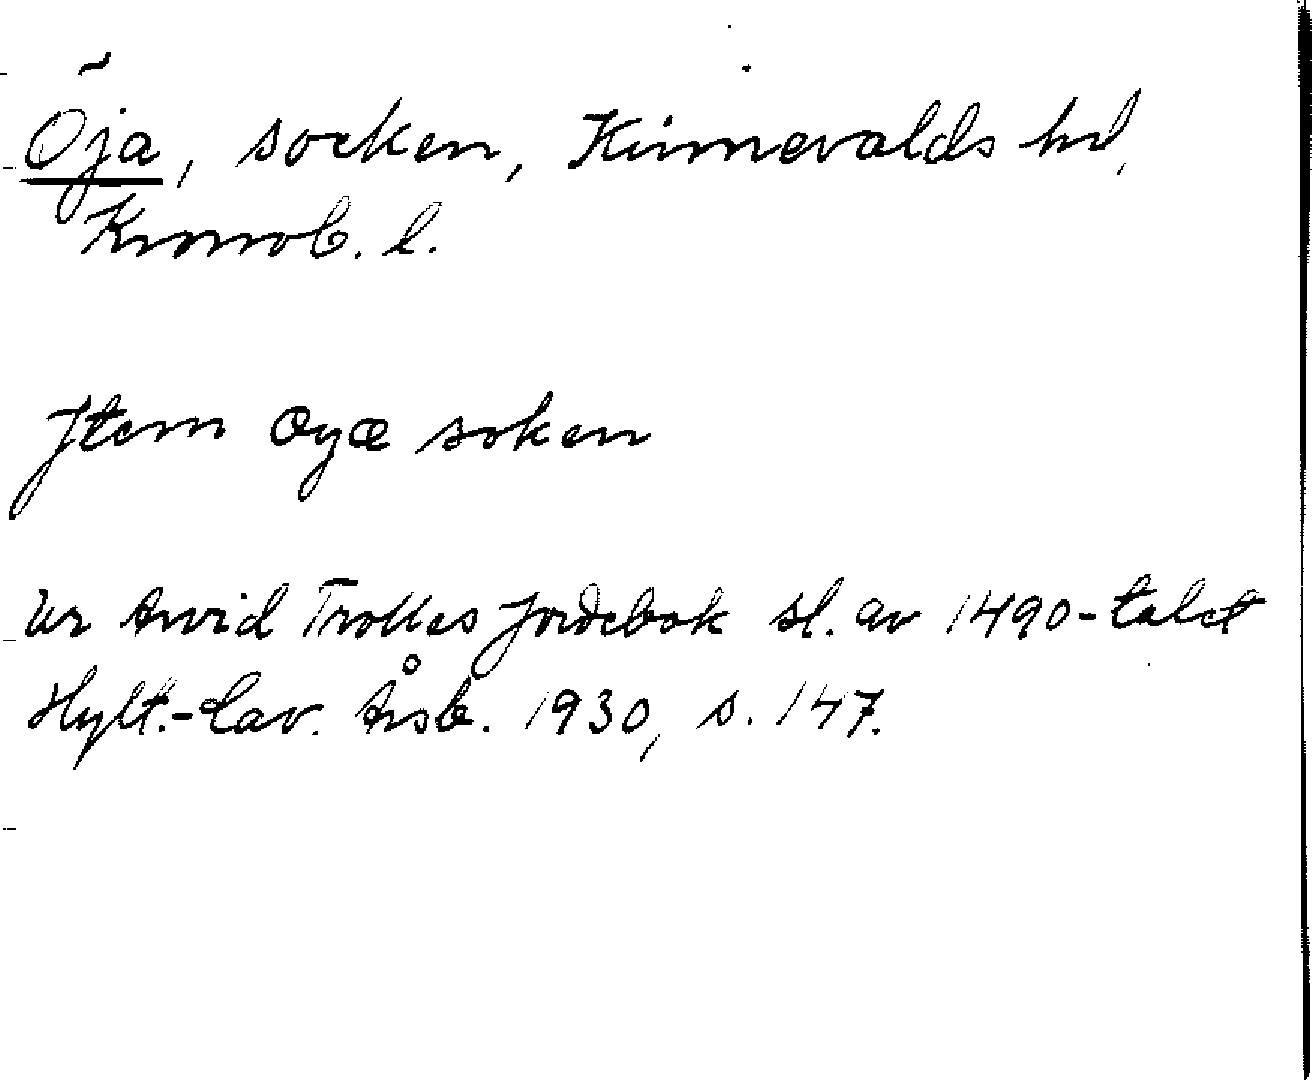 Öja, socken, Kinnevalds hd,
Kronob. l.
Jtem Oyæ soken
Ur Arvid Trolles Jordebok sl. av 1490-talet
Hylt.-Cav. Årsb. 1930, s. 147.